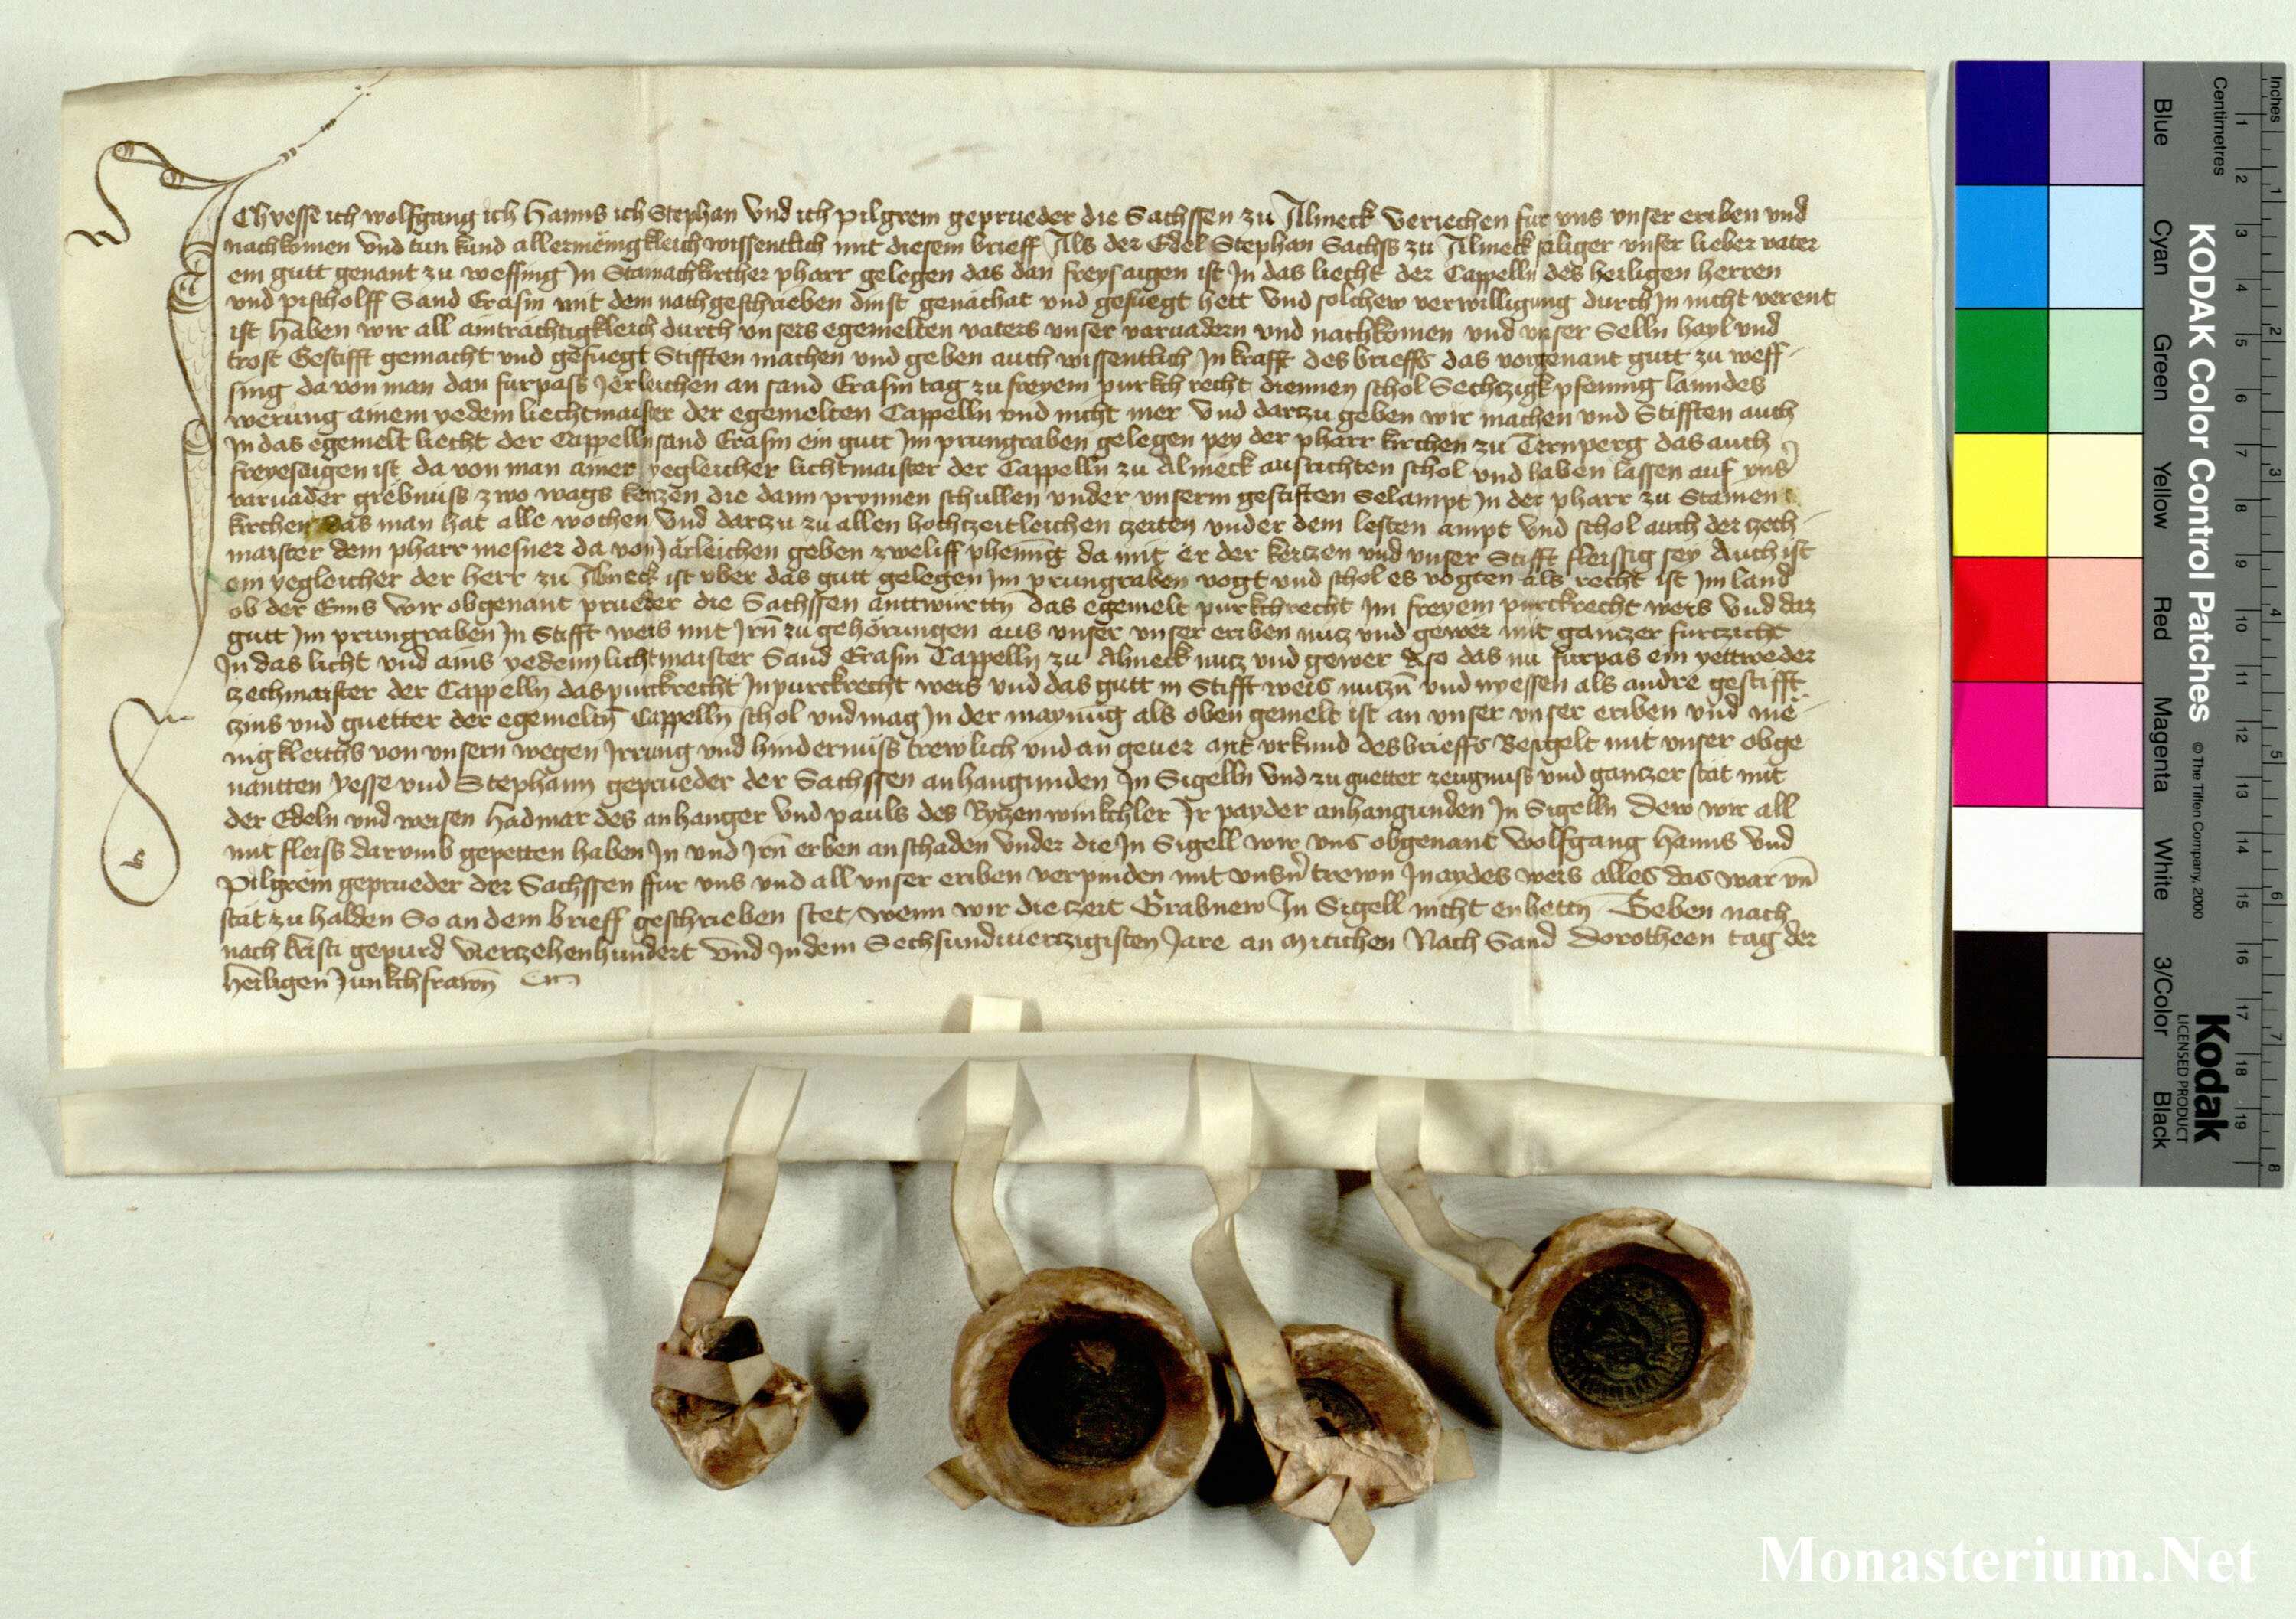 Ich yesse ich wolfgang ich Hanns ich Stephan Und ich pilgreim geprueder die Sachssen zu Almeck veriechen fur uns unser eriben und
nachkomen Und tun kund allermenigkleich wissentlich mit diesem brieff Als der Edel Stephan Sachss zu Almeck saliger unser lieber vater
ein gutt genant zu weffing In Stainachkircher pharr gelegen das dan freys aigen ist In das liecht der Cappelln des heiligen herren
und pischolff Sand Erasm mit dem nachgeschrieben dinst genachat und gefuegt hett Und solchew verwilligung durch In nicht verent
ist Haben wir all aintrachtigkleich durch unsers egemelten vaters unser varvadern und nachkomen und unser Selln hayl und
trost Gestifft gemacht und gefuegt Stifften machen und geben auch wissentlich In krafft des brieffs das vorgenant gutt zu weff-
sing da von man dan furpass Jerleichen an sand Erasm tag zu freyem purkchrecht diennen schol Sechtzigk pfennig lanndes
werung ainem yedem liechtmaister der egemelten Cappelln und nicht mer Und dartzu geben wir machen und Stifften auch
In das egemelt liecht der Cappelln sand Erasm ein gutt Im prungraben gelegen pey der pharr kirchen zu Ternperg das auch
freyesaigen ist da von man ainer yegleicher lichtmaister der Cappelln zu Almeck ausrichten schol und haben lassen auf uns
varvader grebnuss zwo wags kerzen die dann prynnen schullen under unserm gestifften Selampt In der pharr zu Stainen
kirchen das man hat alle wochen Und dartzu zu allen hochtzeitleichen tzeiten under dem lesten ampt Und schol auch der tzech-
maister dem pharr mesner da von Jarleichen geben zweliff phennig da mit er der kertzen und unser Stifft fleissig sey Auch ist
ein yegleicher der herr zu Almeck ist uber das gutt gelegen Im prungraben vogt und schol es vogten als recht ist Im land
ob der Enns Wir obgenant prueder die Sachssen anttwurttn das egemelt purkchrecht Im freyem purckrecht weis Und daz
gutt Im prungraben In Stifft weis mit Irn zu gehorungen aus unser unser eriben nutz und gewer mit gantzer furtzicht
In das licht und ains yedenn lichtmaister Sand Erasm Cappelln zu Almeck nutz und gewer Also das nu furpas ein yettweder
tzechmaister der Cappelln das purckrecht In purckrecht weis und das gutt in Stifft weis nutzn und nyessen als andre gestifft
tzins und guetter der egemeltn Cappelln schol und mag In der maynung als oben gemelt ist an unser unser eriben und me-
nigkleichs von unsern wegen Irrung und hindernuss trewlich und an gever mit urkund des brieffs Besigelt mit unser obge
nantten yesse und Stephann geprueder der Sachssen anhangunden In Sigelln Und zu guetter zeugnuss und gantzer stat mit
der Edeln und weisen Hadmar des anhanger Und pauls des Rytzenwinkchler Ir payder anhangunden In Sigelln Dew wir all
mit fleiss darumb gepetten haben In und Irn erben an schaden Under die In Sigell wir uns obgenant Wolfgang Hanns Und
Pilgreim geprueder der Sachssen ffur uns und all unser eriben verpinden mit unsn trewn In aydes weis alles das war un
stat zu halden So an dem brieff geschrieben stet Wenn wir die tzeit Grabnew In Sigell nicht enhettn Geben nach
nach kristi gepurd Viertzehenhundert Und In dem Sechsundviertzigisten Jare an Mitichen Nach Sand Dorotheen tag der
heiligen Junkchfrawn
Inches
Centimetres
Blue Cyan Green Yellow Red Magenta White 3/Color Black
KODAK Color Control Patches © The Tiffen Company, 2000
Kodak
LICENSED PRODUCT
1 2 3 4 5 6 7 8 9 10 11 12 13 14 15 16 17 18 19
1 2 3 4 5 6 7 8
Monasterium.Net